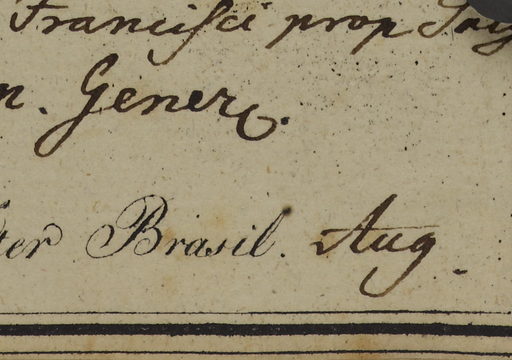 Franciſci prop
n. Gener.
ter Brasil. Aug.